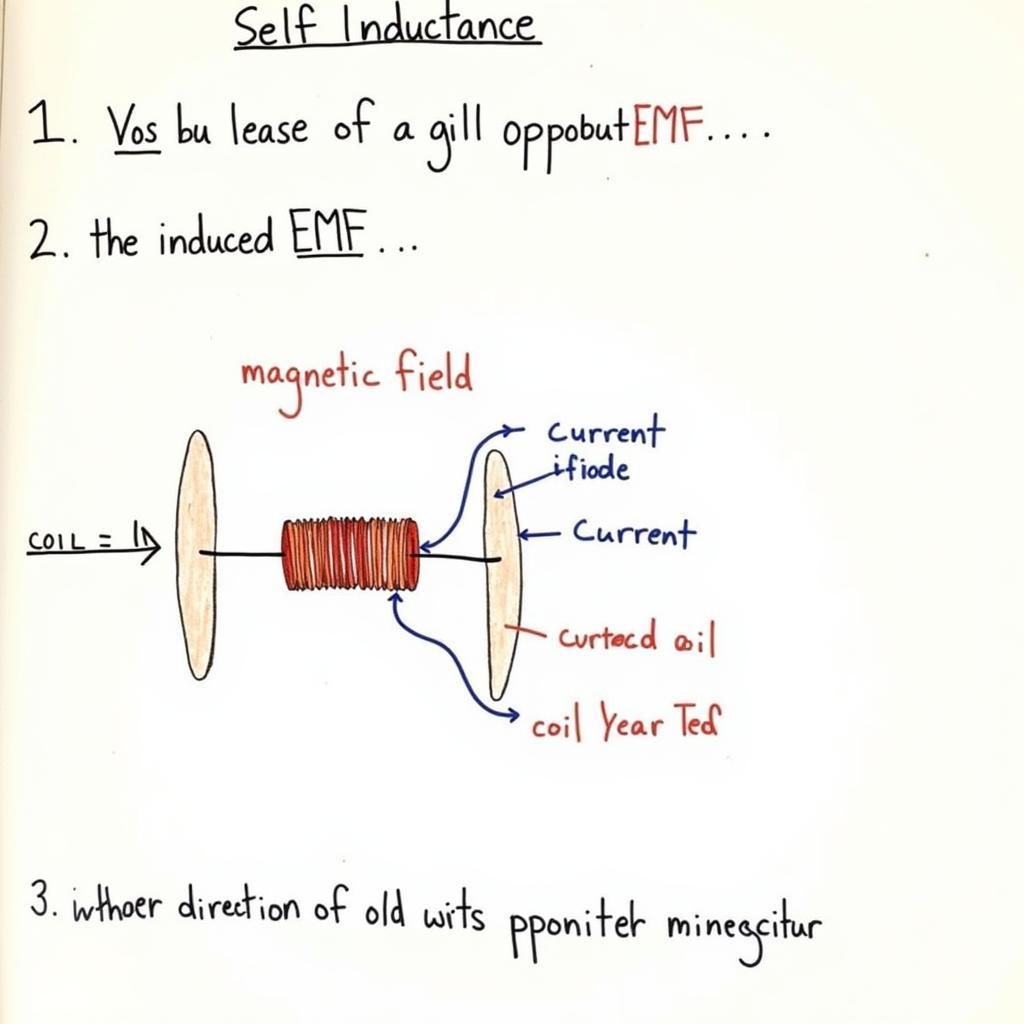 Self Inductance
1. Vos bu lease of a gill oppobut EMF....
2. the induced EMF...
magnetic field
current
ifiode
COIL =
Current
curtacd oil
coil Year Ted
3. iwthoer direction of old wits pponiteh minegcitur